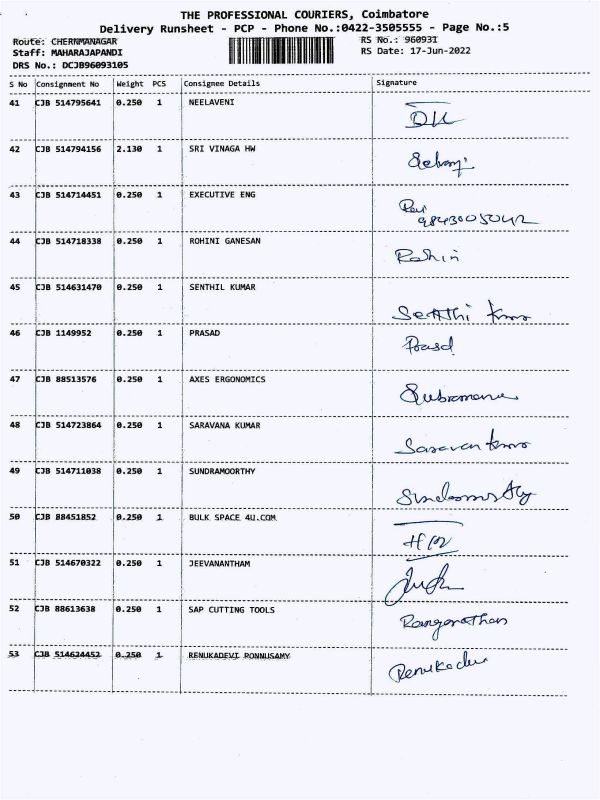 THE PROFESSIONAL COURIERS, Coimbatore
Delivery Runsheet - PCP - Phone No.:0422-3505555 - Page No.:5
Route: CHERNMANAGAR RS No.: 960931
Staff: MAHARAJAPANDI RS Date: 17-Jun-2022
DRS No.: DCJB96093105
S No Consignment No Weight PCS Consignee Details Signature
41 CJB 514795641 0.250 1 NEELAVENI
42 CJB 514794156 2.130 1 SRI VINAGA HW
43 CJB 514714451 0.250 1 EXECUTIVE ENG Ravi
9843005042
44 CJB 514718338 0.250 1 ROHINI GANESAN Rohini
45 CJB 514631470 0.250 1 SENTHIL KUMAR
46 CJB 1149952 0.250 1 PRASAD Prasd
47 CJB 88513576 0.250 1 AXES ERGONOMICS
48 CJB 514723864 0.250 1 SARAVANA KUMAR
49 CJB 514711038 0.250 1 SUNDRAMOORTHY
50 CJB 88451852 0.250 1 BULK SPACE 4U.COM
51 CJB 514670322 0.250 1 JEEVANANTHAM
52 CJB 88613638 0.250 1 SAP CUTTING TOOLS Ranganathan
53 CJB 514624452 0.250 1 RENUKADEVI PONNUSAMY